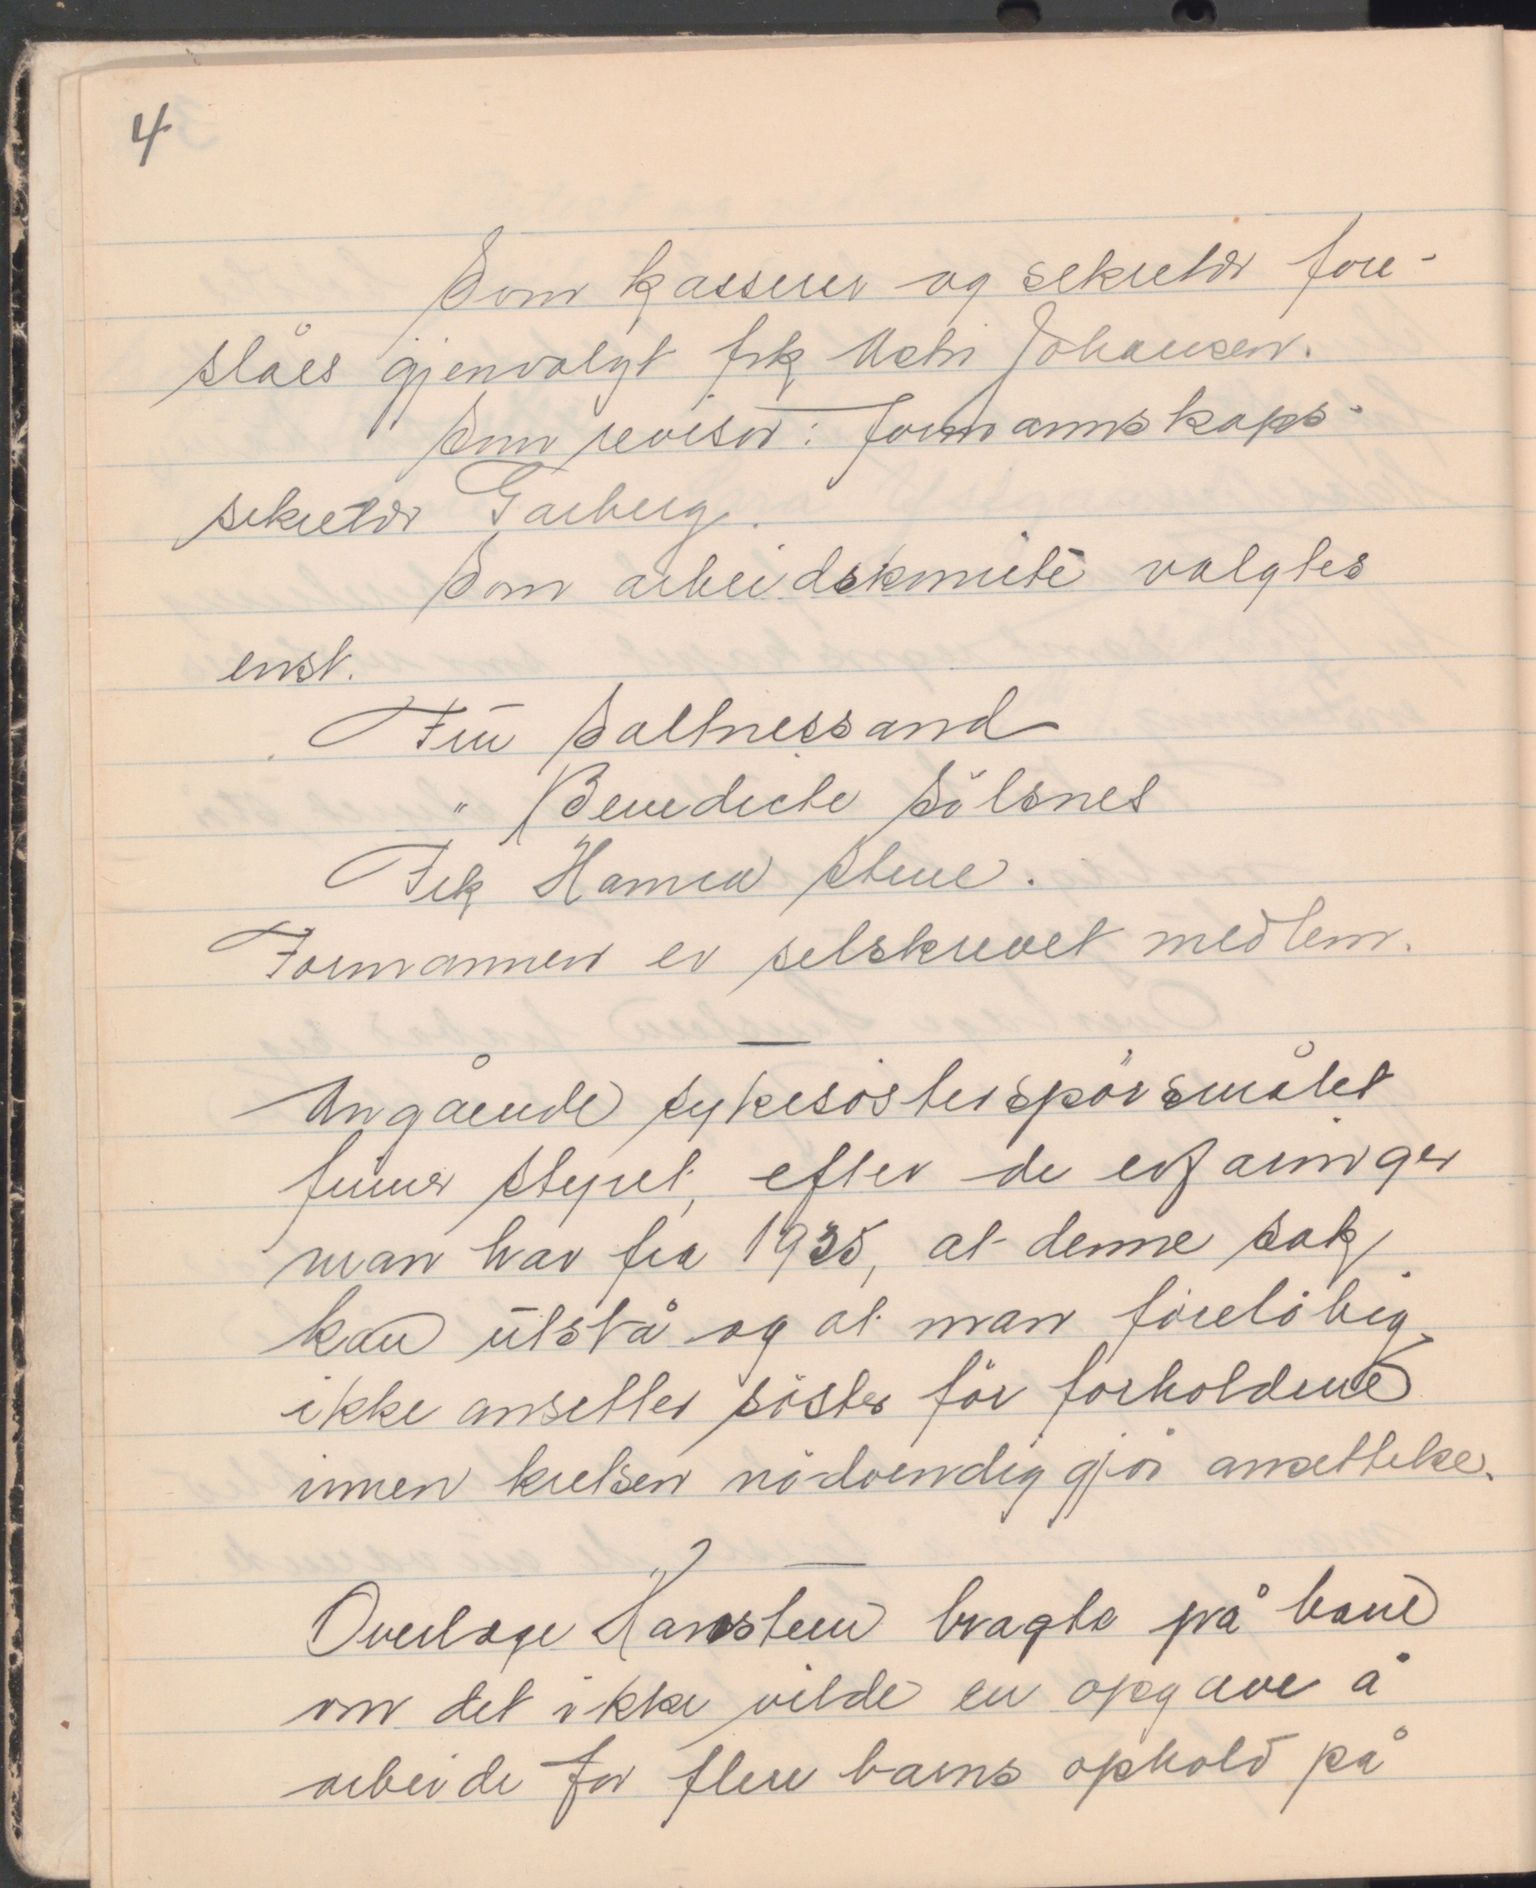 4
Som kasserer og sekretær fore-
slåes gjenvalgt frk Johansen.
Som revisor: Formannskaps-
sekretær Garberg.
Som arbeidskomite valgtes
enst.
Fru Saltnessand
" Benedicte Sölsnes
Frk Hanna Stene.
Formannen er selskrevet medlem.
Angående sykesösterspörsmålet
finner styret, efter de erfaringer
man har fra 1935, at denne sak
kan utstå og at man forelöbig
ikke ansetter söster för forholdene
innen kretsen nödvendiggjör ansettelse.
Overlæge Hansteen bragte på bane
om det ikke vilde en opgave å
arbeide for flere barns ophold på